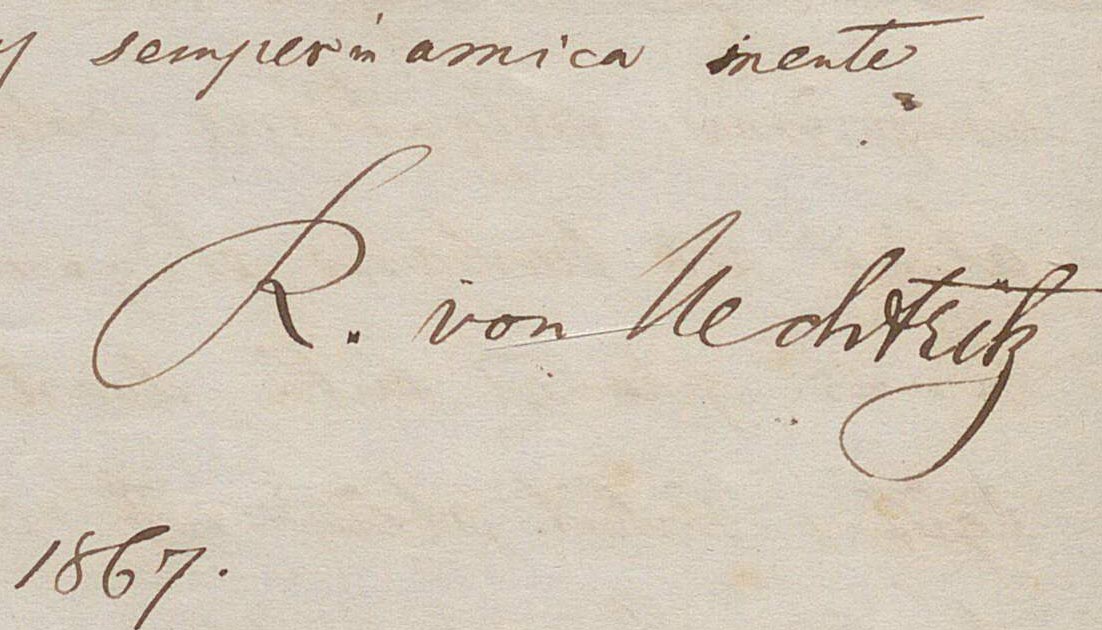 semper in amica mente
R. von Uechtritz
1867.